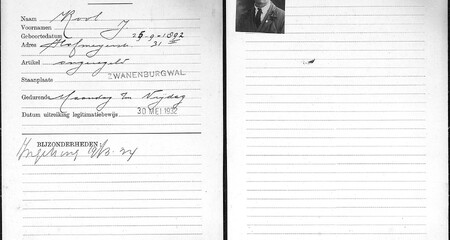 Naam Kool
Voornamen J
Geboortedatum 25-9-1892
Adres 31 III
Artikel ongeregeld
Staanplaats ZWANENBURGWAL
Gedurende Maandag t/m Vrijdag
Datum uitreiking legitimatiebewijs 30 MEI 1932
BIJZONDERHEDEN: